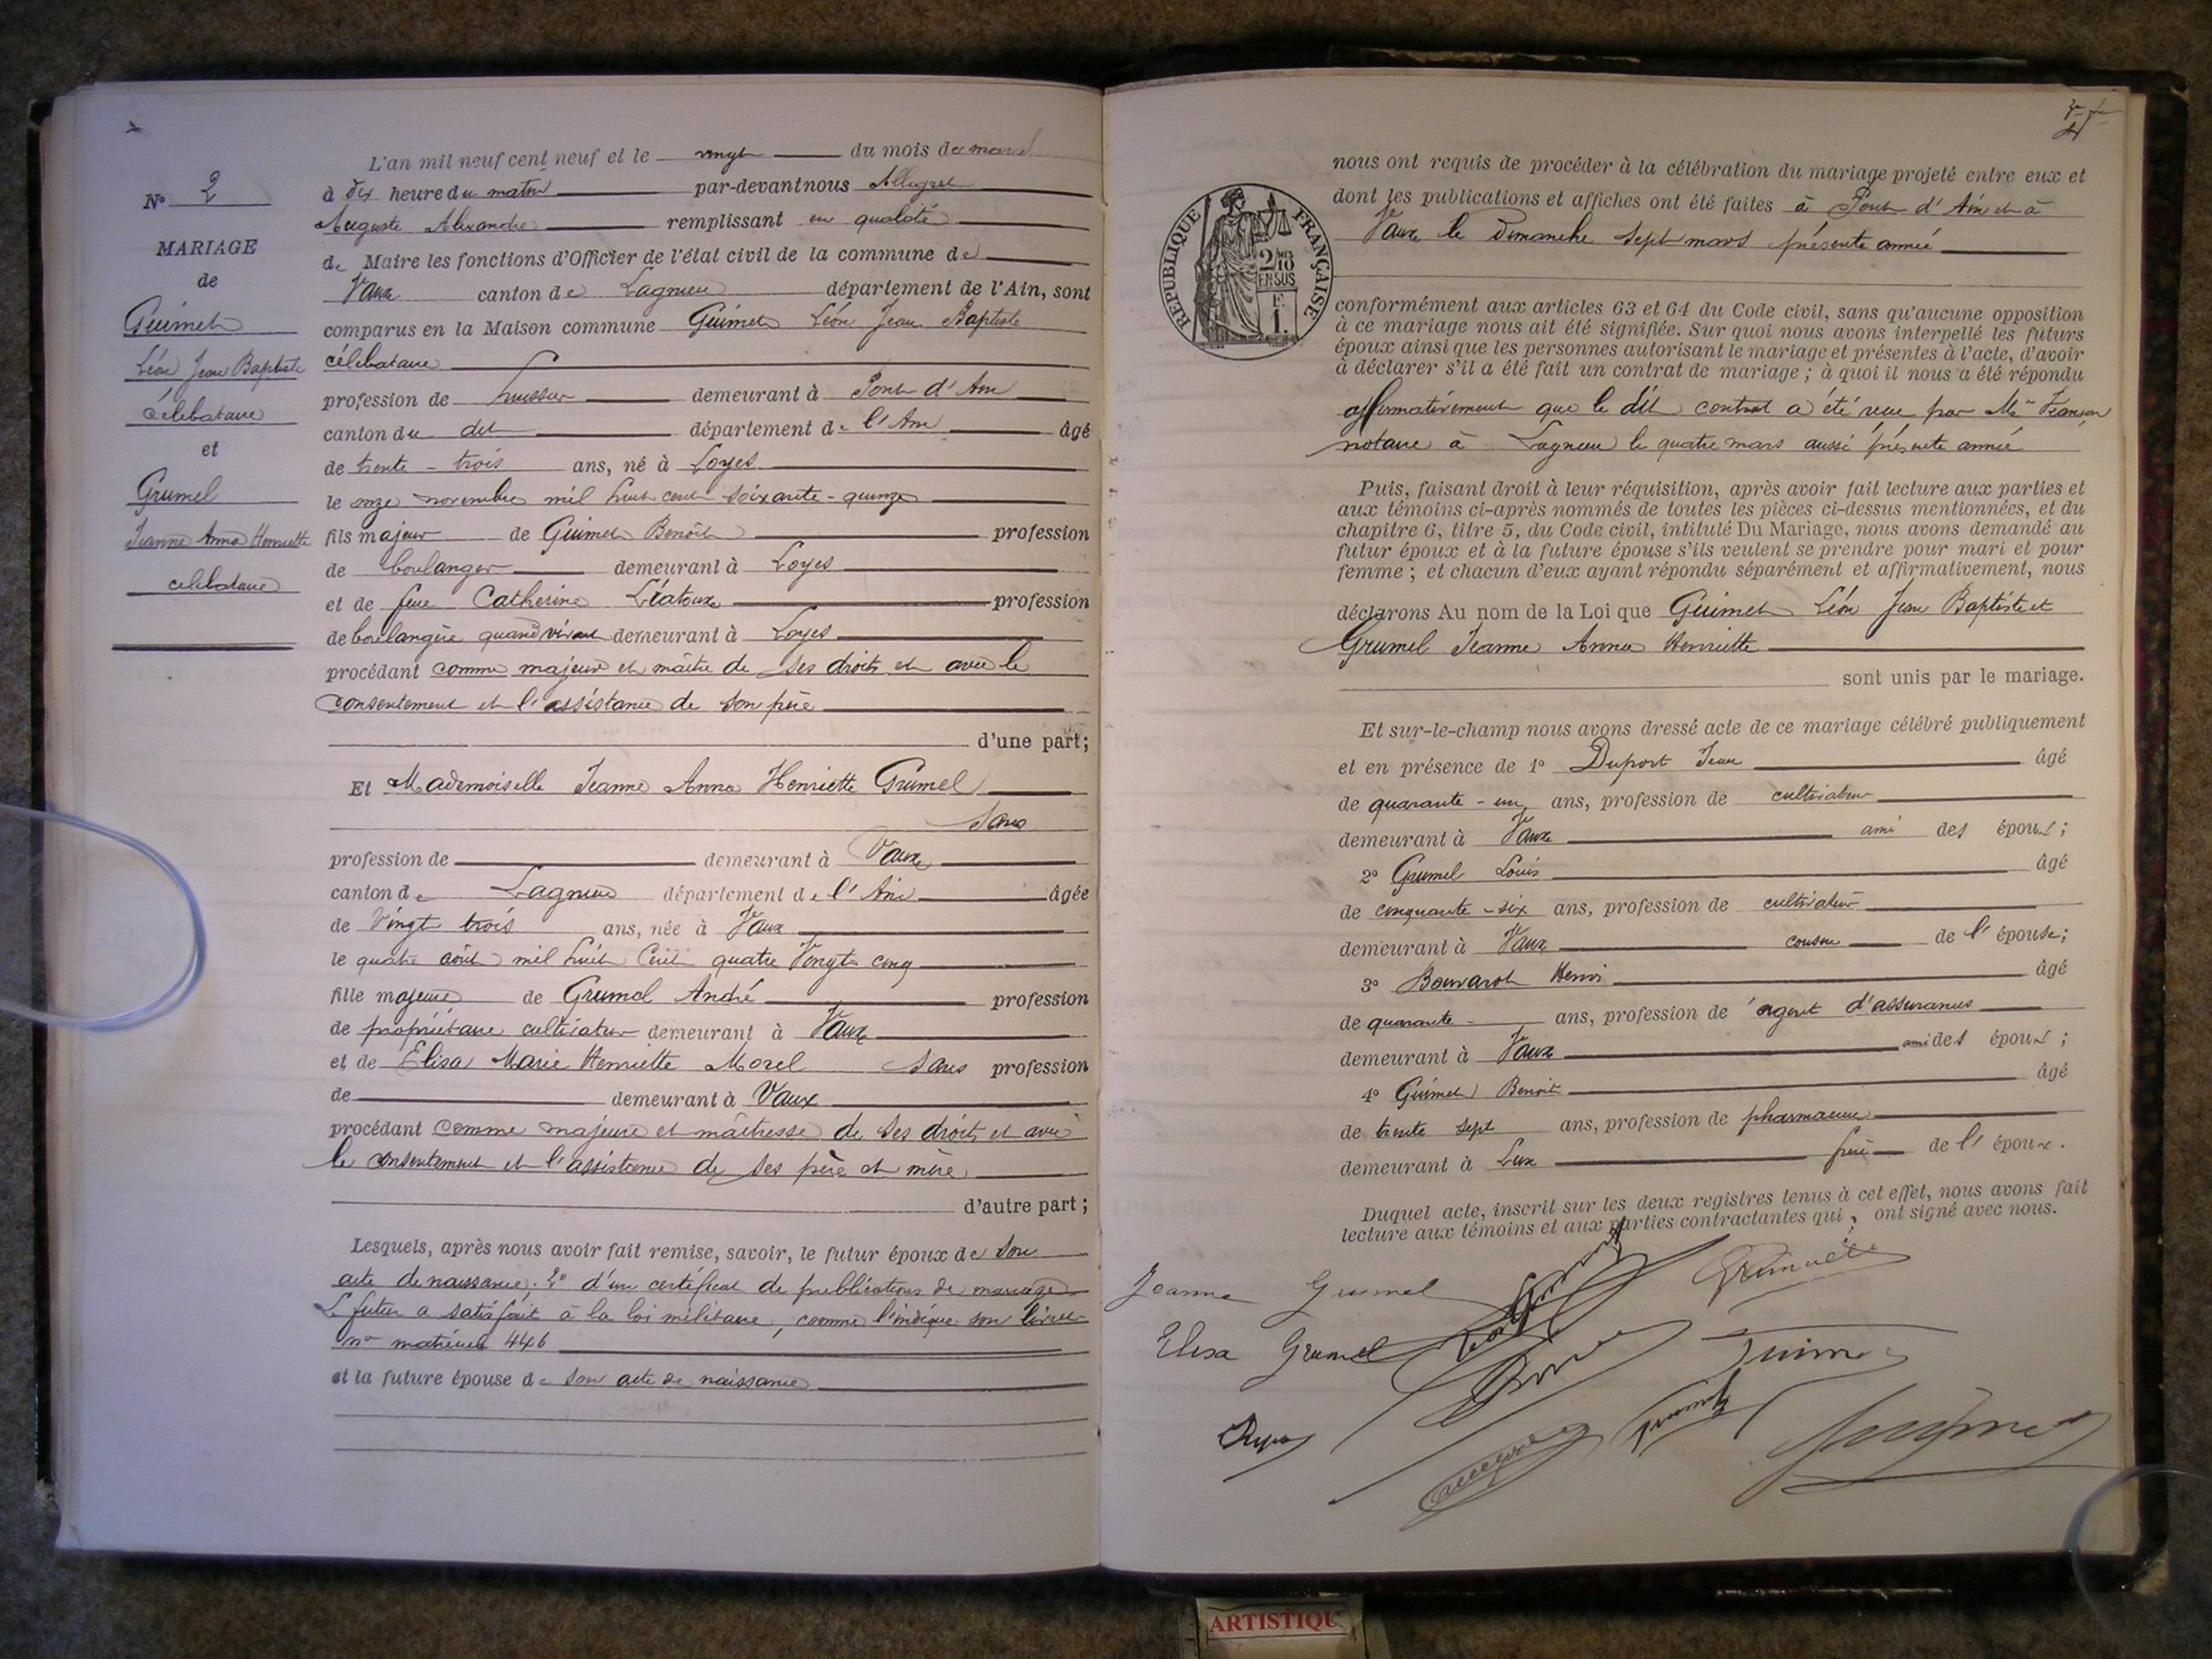 N° 2
MARIAGE
de
Guimet
Léon Jean Baptiste
célibataire
et
Grumel
Jeanne Anna Henriette
célibataire
L'an mil neuf cent neuf et le vingt du mois de mars
à dix heure du matin par-devant nous Allegret
Auguste Alexandre remplissant en qualité
de Maire les fonctions d'Officier de l'état civil de la commune de
Vaux canton de Lagnieu département de l'Ain, sont
comparus en la Maison commune Guimet Léon Jean Baptiste
célibataire
profession de huissier demeurant à Pont d'Ain
canton du dit département de l'Ain âgé
de trente-trois ans, né à Loyes
le onze novembre mil huit cent soixante-quinze
fils majeur de Guimet Benoît profession
de boulanger demeurant à Loyes
et de feue Catherine Léatoux profession
de boulangère quand vivait demeurant à Loyes
procédant comme majeur et maître de ses droits et avec le
consentement et l'assistance de son père
d'une part;
Et Mademoiselle Jeanne Anna Henriette Grumel
sans
profession de demeurant à Vaux
canton de Lagnieu département de l'Ain âgée
de vingt trois ans, née à Vaux
le quatre août mil huit cent quatre vingt cinq
fille majeure de Grumel André profession
de propriétaire cultivateur demeurant à Vaux
et de Elisa Marie Henriette Morel sans profession
de demeurant à Vaux
procédant comme majeure et maîtresse de ses droits et avec
le consentement et l'assistance de ses père et mère
d'autre part;
Lesquels, après nous avoir fait remise, savoir, le futur époux de son
acte de naissance; 2° d'un certificat de publications de mariage
Le futur a satisfait à la loi militaire, comme l'indique son livret
n° matricule 446
et la future épouse de son acte de naissance
REPUBLIQUE FRANÇAISE
2/10
EN SUS
F.
1.
nous ont requis de procéder à la célébration du mariage projeté entre eux et
dont les publications et affiches ont été faites à Pont d'Ain et à
Vaux le Dimanche sept mars présente année
conformément aux articles 63 et 64 du Code civil, sans qu'aucune opposition
à ce mariage nous ait été signifiée. Sur quoi nous avons interpellé les futurs
époux ainsi que les personnes autorisant le mariage et présentes à l'acte, d'avoir
à déclarer s'il a été fait un contrat de mariage; à quoi il nous a été répondu
affirmativement que le dit contrat a été reçu par Me
notaire à Lagnieu le quatre mars aussi présente année
Puis, faisant droit à leur réquisition, après avoir fait lecture aux parties et
aux témoins ci-après nommés de toutes les pièces ci-dessus mentionnées, et du
chapitre 6, titre 5, du Code civil, intitulé Du Mariage, nous avons demandé au
futur époux et à la future épouse s'ils veulent se prendre pour mari et pour
femme; et chacun d'eux ayant répondu séparément et affirmativement, nous
déclarons Au nom de la Loi que Guimet Léon Jean Baptiste et
Grumel Jeanne Anna Henriette
sont unis par le mariage.
Et sur-le-champ nous avons dressé acte de ce mariage célébré publiquement
et en présence de 1° Duport Jean âgé
de quarante-un ans, profession de cultivateur
demeurant à Vaux ami des époux;
2° Grumel Louis âgé
de cinquante-six ans, profession de cultivateur
demeurant à Vaux cousin de l'épouse;
3° Bouvarot Henri âgé
de quarante ans, profession de agent d'assurances
demeurant à Vaux ami des époux;
4° Guimet Benoit âgé
de trente sept ans, profession de pharmacien
demeurant à Lux frère de l'époux.
Duquel acte, inscrit sur les deux registres tenus à cet effet, nous avons fait
lecture aux témoins et aux parties contractantes qui, ont signé avec nous.
Jeanne Grumel
Elisa Grumel
ARTISTIQU